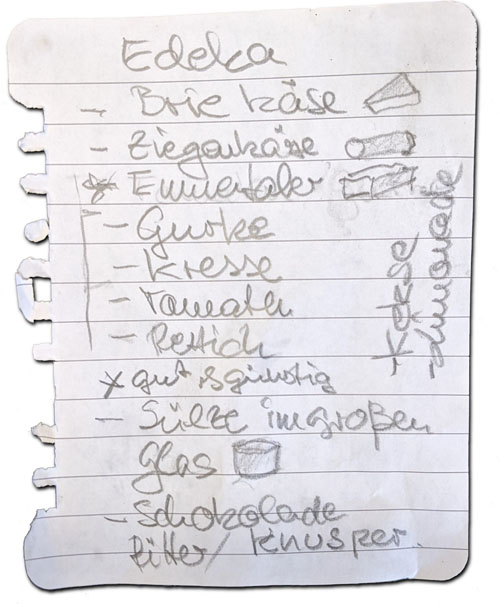 Edeka
- Brie käse
- Ziegenkäse
* Emmertaler
- Gurke
- Kresse
- Tomaten
- Rettich
x gut & günstig
- Sülze im großen
Glas
- Schokolade
Ritter / Knusper.
- Kekse
- Limonade